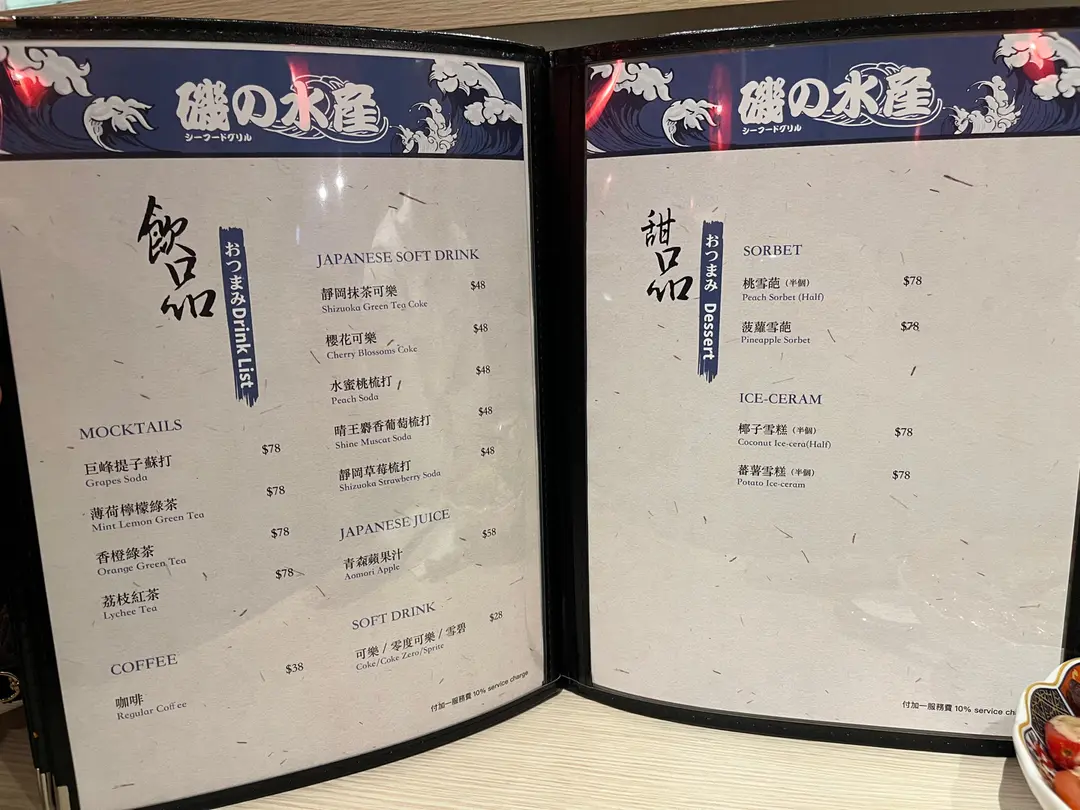 磯の水産
シーフードグリル
飲品
おつまみ Drink List
MOCKTAILS
巨峰提子蘇打 $78
Grapes Soda
薄荷檸檬綠茶 $78
Mint Lemon Green Tea
香橙綠茶 $78
Orange Green Tea
荔枝紅茶 $78
Lychee Tea
COFFEE
咖啡 $38
Regular Coffee
JAPANESE SOFT DRINK
靜岡抹茶可樂 $48
Shizuoka Green Tea Coke
櫻花可樂 $48
Cherry Blossoms Coke
水蜜桃梳打 $48
Peach Soda
晴王麝香葡萄梳打 $48
Shine Muscat Soda
靜岡草莓梳打 $48
Shizuoka Strawberry Soda
JAPANESE JUICE
青森蘋果汁 $58
Aomori Apple
SOFT DRINK
可樂 / 零度可樂 / 雪碧 $28
Coke/Coke Zero/Sprite
付加一服務費 10% service charge
磯の水産
シーフードグリル
甜品
おつまみ Dessert
SORBET
桃雪葩 (半個) $78
Peach Sorbet (Half)
菠蘿雪葩 $78
Pineapple Sorbet
ICE-CERAM
椰子雪糕 (半個) $78
Coconut Ice-cera(Half)
蕃薯雪糕 (半個) $78
Potato Ice-ceram
付加一服務費 10% service